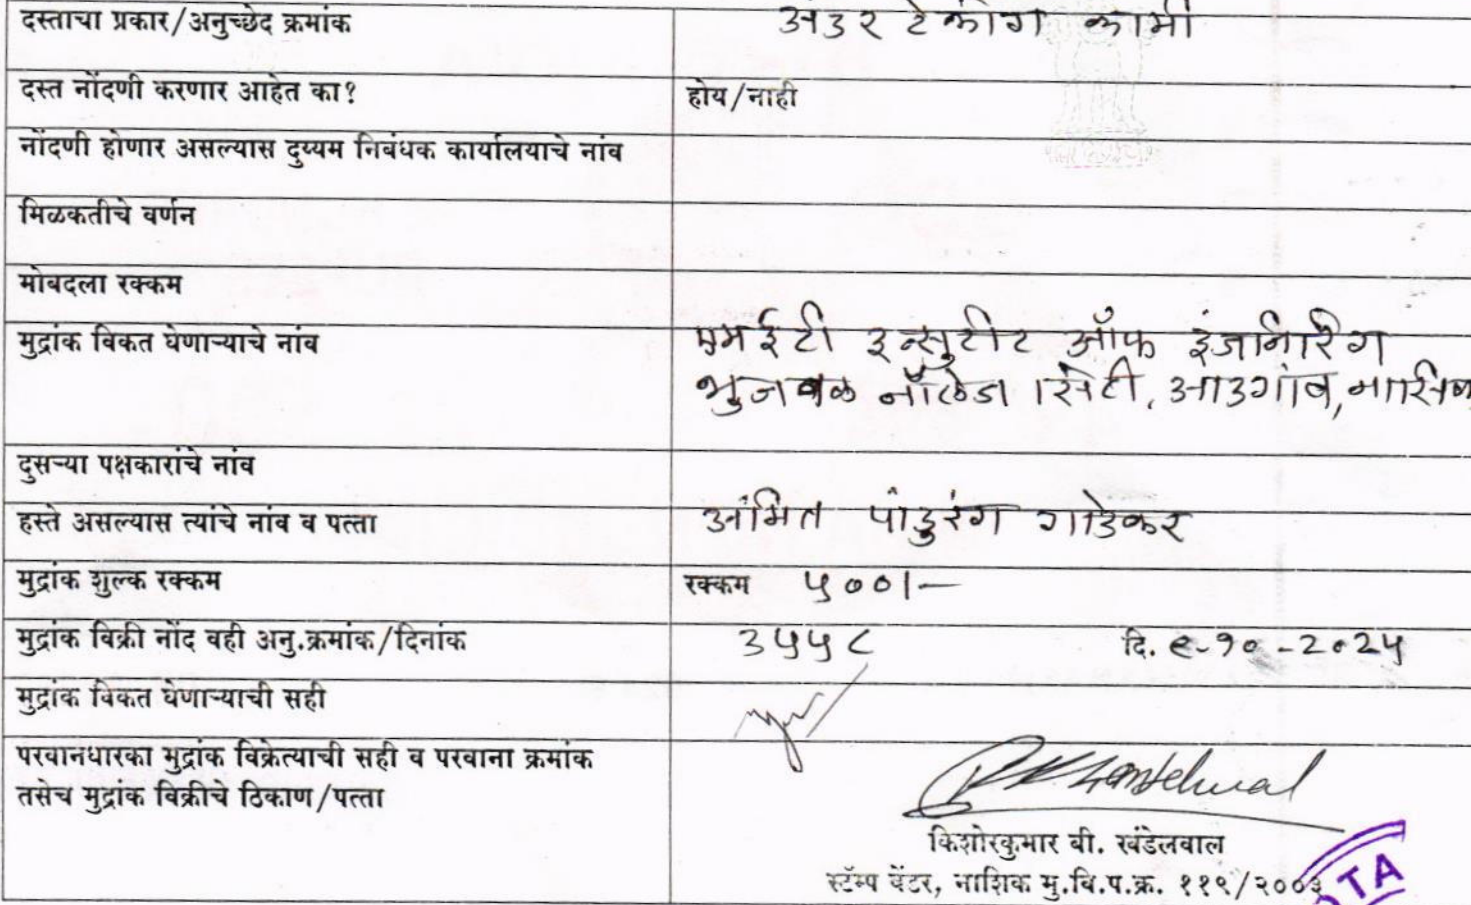 दस्ताचा प्रकार/अनुच्छेद क्रमांक अंडर टेकींग कामी
दस्त नोंदणी करणार आहेत का? होय/नाही
नोंदणी होणार असल्यास दुय्यम निबंधक कार्यालयाचे नांव
मिळकतीचे वर्णन
मोबदला रक्कम
मुद्रांक विकत घेणाऱ्याचे नांव एमईटी इन्सुटीट ऑफ इंजनिरिंग
भुजबळ नॉलेज सिटी, आडगांव, नासिक
दुसऱ्या पक्षकारांचे नांव
हस्ते असल्यास त्यांचे नांव व पत्ता अमित पांडुरंग गाडेकर
मुद्रांक शुल्क रक्कम रक्कम ५००/-
मुद्रांक विक्री नोंद वही अनु.क्रमांक/दिनांक ३५५८ दि. ९-१०-२०२५
मुद्रांक विकत घेणाऱ्याची सही
परवानधारका मुद्रांक विक्रेत्याची सही व परवाना क्रमांक
तसेच मुद्रांक विक्रीचे ठिकाण/पत्ता
किशोरकुमार बी. खंडेलवाल
स्टॅम्प वेंडर, नाशिक मु.वि.प.क्र. ११९/२००३
OTA